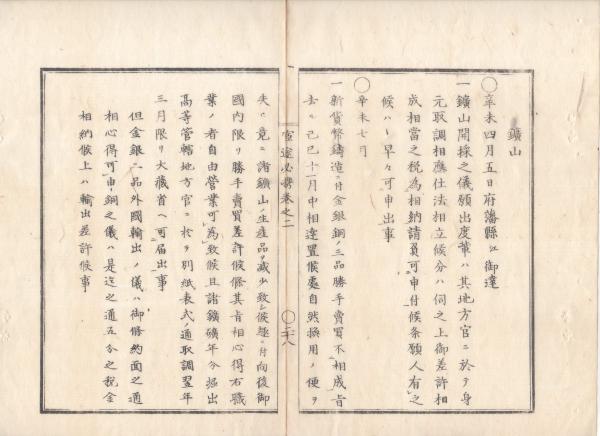 鑛山
〇辛未四月五日府藩縣江御達
一鑛山開採之儀願出度輩ハ其地方官ニ於テ身
元取調相應仕法相立候分ハ伺之上御差許相
成相當之税為相納請負可申付候条願人有之
候ハヽ早々可申出事
〇辛未七月
一新貨幣鑄造ニ付金銀銅ノ三品勝手賣買不相成旨
去ル己巳十一月中相達置候處自然換用ノ便ヲ
官途必携巻之二
〇三十八
失ヒ竟ニ諸鑛山ノ生産品ヲ減少致シ候趣ニ付向後御
國内限リ勝手賣買差許候條其旨相心得右職
業ノ者自由營業可為致候且諸鑛礦年分掘出
高等管轄地方官ニ於テ別紙表式ノ通取調翌年
三月限リ大藏省ヘ可届出事
但金銀二品外國輸出ノ儀ハ御條約面之通
相心得可申銅之儀ハ是迄之通五分之税金
相納候上ハ輸出差許候事